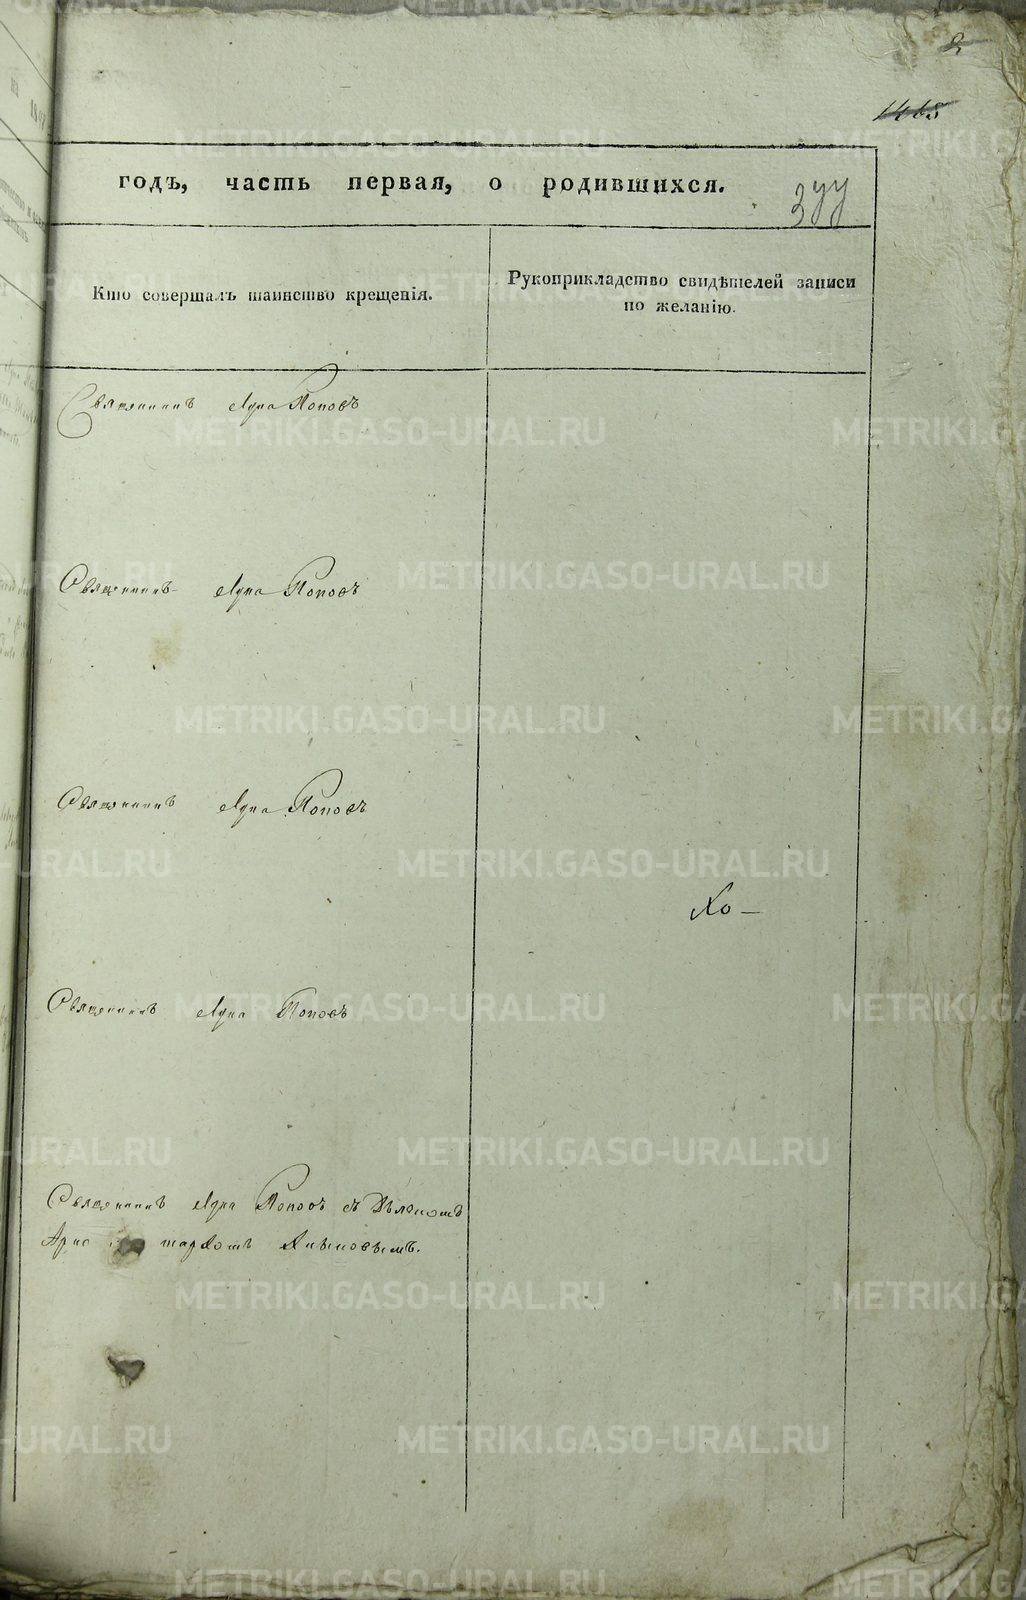 1465
годъ, часть первая, о родившихся.
377
Кто совершалъ таинство крещенія.
Рукоприкладство свидѣтелей записи
по желанію.
Священникъ Поповъ
Священникъ Поповъ
Священникъ Поповъ
Священникъ Поповъ
Священникъ Поповъ съ Дьякомъ
METRIKI.GASO-URAL.RU